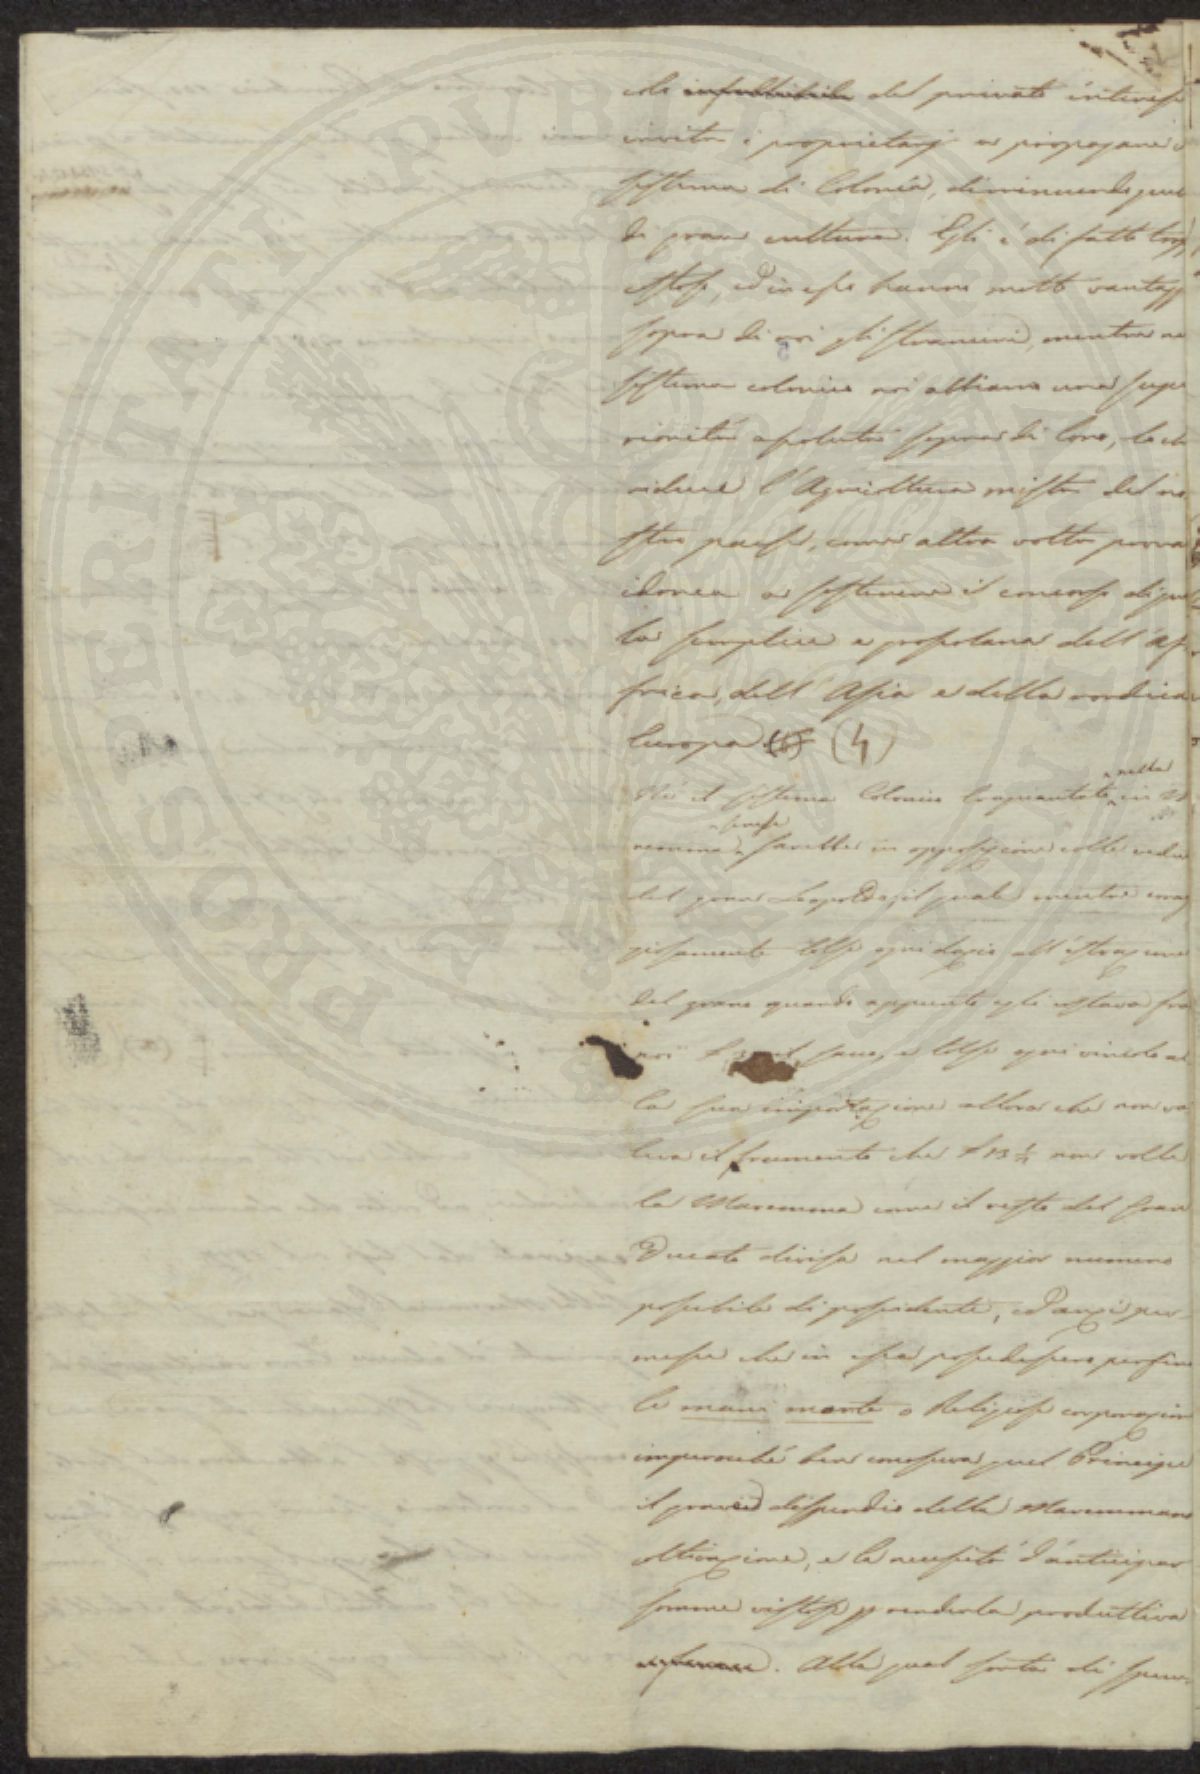 colo infallibile del privato interesse
invita i proprietarj a propagare il
sistema di Colonìa, diminuendo quel
di gran cultura. Egli è di fatto trop
costoso, ed in esso hanno molti vantaggj
sopra di noi gli stranieri, mentre nel
sistema colonico noi abbiamo una supe
riorità assoluta sopra di loro, lo che
riduce l'Agricoltura mista del no
stro paese, come altra volta provai
idonea a sostenere il concorso di quel
la semplice e grossolana dell'Af
frica, dell'Asia e della nordica
Europa (4)
Nè il sistema Colonico trapiantato nella in Ma
remma senese sarebbe in opposizione colle vedute
del gran Leopoldo, il quale mentre corag
giosamente tolse ogni dazio all'estrazione
del grano quando appunto egli costava fra
noi il sacco, e tolse ogni vincolo al
la sua importazione allora che non va
leva il frumento che £ 13 ½ non volle
la Maremma come il resto del Gran
Ducato divisa nel maggior numero
possibile di possidenti, ed anzi per-
messe che in essa possedessero persino
le mani morte o Religiose corporazioni
imperocchè ben conosceva quel Principe
il grave dispendio della Maremmana
coltivazione, e la necessità d'anticipar
somme vistose p renderla produttiva
. Alla qual sorta di specu-
PROSPERITATI PVBLICAE